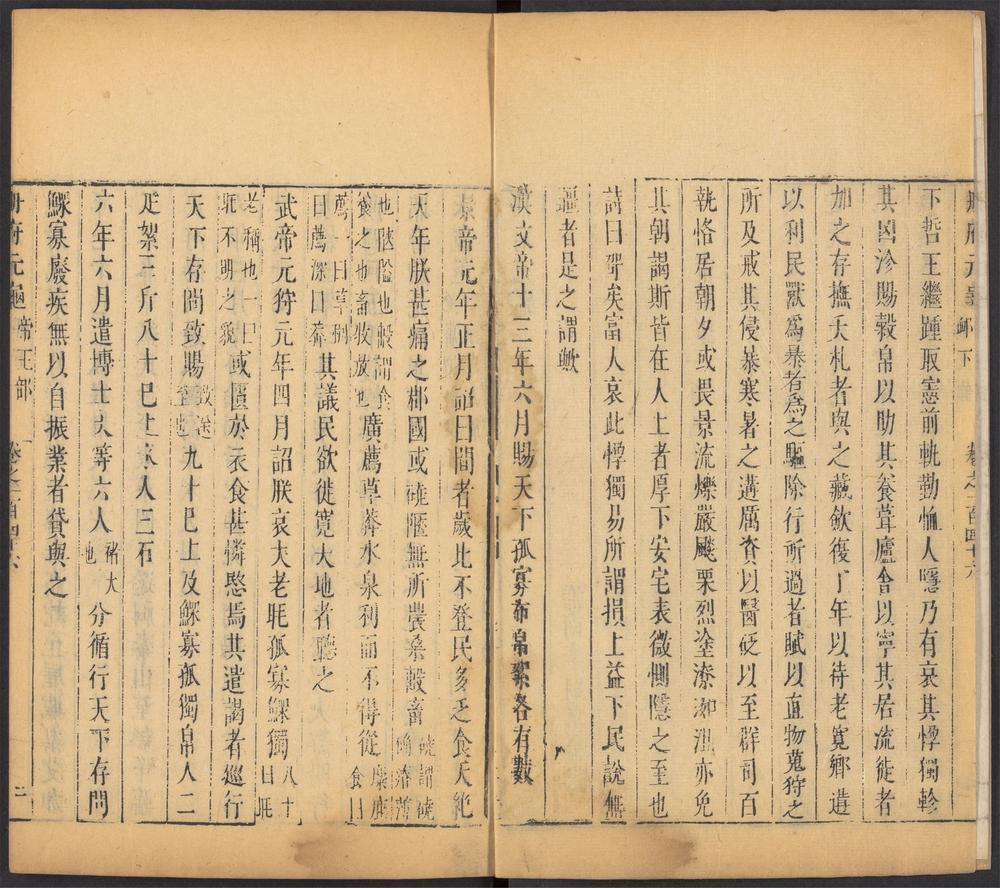 冊府元龜 卹下 卷之一百四十六
下哲王繼踵取憲前軌勤恤人隱乃有哀其惸獨軫
其凶沴賜穀帛以助其養葺廬舍以寧其居流徙者
加之存撫夭札者與之藏斂復丁年以待老寬鄉遺
以利民獸為暴者為之驅除行所過者賦以直物蒐狩之
所及戒其侵暴寒暑之遘厲資以醫砭以至群司百
執恪居朝夕或畏景流爍嚴飈栗烈塗潦沮洳亦免
其朝謁斯皆在人上者厚下安宅表微惻隱之至也
詩曰哿矣富人哀此惸獨易所謂損上益下民說無
疆者是之謂歟
漢文帝十三年六月賜天下孤寡布帛絮各有數
景帝元年正月詔曰間者歲比不登民多乏食夭絶
天年朕甚痛之郡國或磽陿無所農桑毄畜磽謂磽
确瘠薄
也陿隘也毄謂食
養之也畜牧放也廣薦草莽水泉利而不得徙麋鹿
食曰
薦一曰草稠
曰薦深曰莽其議民欲徙寬大地者聽之
武帝元狩元年四月詔朕哀夫老眊孤寡鰥獨八十
曰眊
老稱也一曰
眊不明之貌或匱於衣食甚憐愍焉其遣謁者巡行
天下存問致賜致送
至也九十已上及鰥寡孤獨帛人二
疋絮三斤八十已上米人三石
六年六月遣博士大等六人禇大
也分循行天下存問
鰥寡廢疾無以自振業者貸與之
冊府元龜 帝王部 卷之一百四十六 二